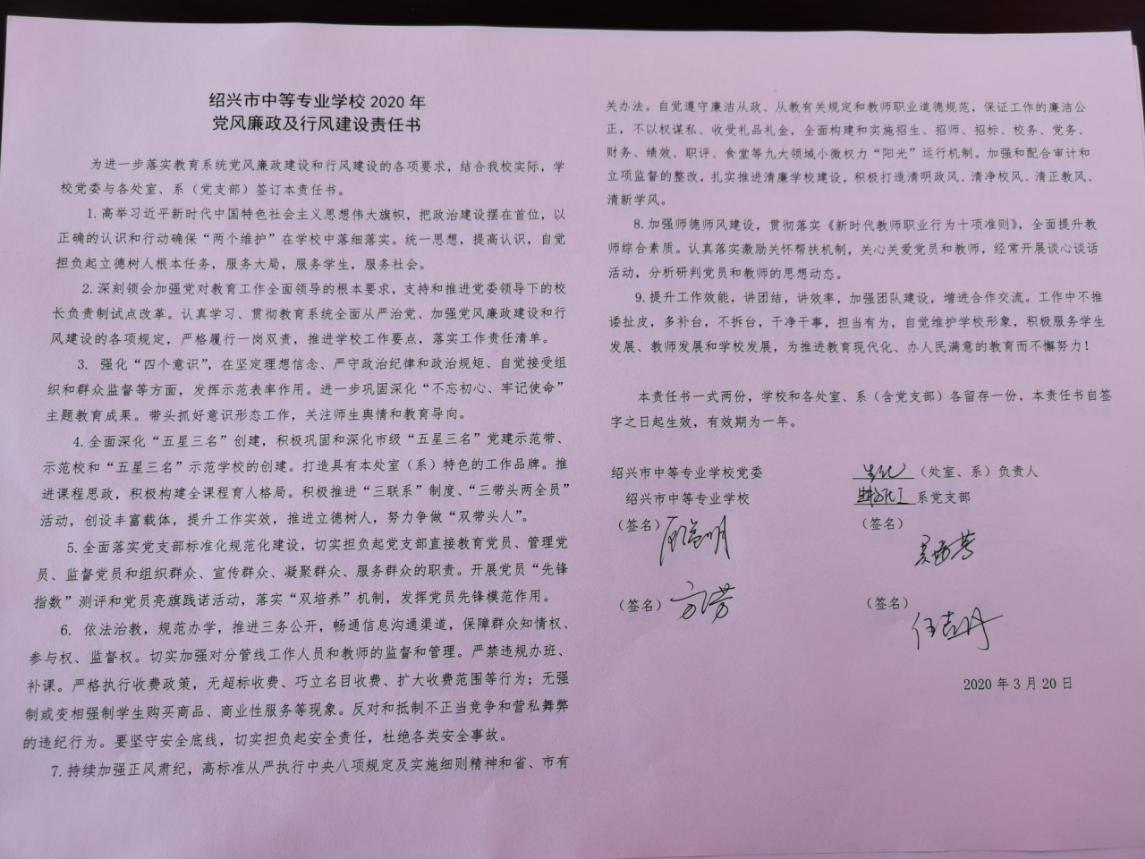 绍兴市中等专业学校 2020 年
党风廉政及行风建设责任书
为进一步落实教育系统党风廉政建设和行风建设的各项要求，结合我校实际，学
校党委与各处室、系（党支部）签订本责任书。
1.高举习近平新时代中国特色社会主义思想伟大旗帜，把政治建设摆在首位，以
正确的认识和行动确保“两个维护”在学校中落细落实。统一思想，提高认识，自觉
担负起立德树人根本任务，服务大局，服务学生，服务社会。
2.深刻领会加强党对教育工作全面领导的根本要求，支持和推进党委领导下的校
长负责制试点改革。认真学习、贯彻教育系统全面从严治党、加强党风廉政建设和行
风建设的各项规定，严格履行一岗双责，推进学校工作要点，落实工作责任清单。
3. 强化“四个意识”，在坚定理想信念、严守政治纪律和政治规矩、自觉接受组
织和群众监督等方面，发挥示范表率作用。进一步巩固深化“不忘初心、牢记使命”
主题教育成果。带头抓好意识形态工作，关注师生舆情和教育导向。
4.全面深化“五星三名”创建，积极巩固和深化市级“五星三名”党建示范带、
示范校和“五星三名”示范学校的创建。打造具有本处室（系）特色的工作品牌。推
进课程思政，积极构建全课程育人格局。积极推进“三联系”制度、“三带头两全员”
活动，创设丰富载体，提升工作实效，推进立德树人，努力争做“双带头人”。
5.全面落实党支部标准化规范化建设，切实担负起党支部直接教育党员、管理党
员、监督党员和组织群众、宣传群众、凝聚群众、服务群众的职责。开展党员“先锋
指数”测评和党员亮旗践诺活动，落实“双培养”机制，发挥党员先锋模范作用。
6. 依法治教，规范办学，推进三务公开，畅通信息沟通渠道，保障群众知情权、
参与权、监督权。切实加强对分管线工作人员和教师的监督和管理。严禁违规办班、
补课。严格执行收费政策，无超标收费、巧立名目收费、扩大收费范围等行为；无强
制或变相强制学生购买商品、商业性服务等现象。反对和抵制不正当竞争和营私舞弊
的违纪行为。要坚守安全底线，切实担负起安全责任，杜绝各类安全事故。
7.持续加强正风肃纪，高标准从严执行中央八项规定及实施细则精神和省、市有
关办法。自觉遵守廉洁从政、从教有关规定和教师职业道德规范，保证工作的廉洁公
正，不以权谋私、收受礼品礼金，全面构建和实施招生、招师、招标、校务、党务、
财务、绩效、职评、食堂等九大领域小微权力“阳光”运行机制。加强和配合审计和
立项监督的整改，扎实推进清廉学校建设，积极打造清明政风、清净校风、清正教风、
清新学风。
8.加强师德师风建设，贯彻落实《新时代教师职业行为十项准则》，全面提升教
师综合素质。认真落实激励关怀帮扶机制，关心关爱党员和教师，经常开展谈心谈话
活动，分析研判党员和教师的思想动态。
9.提升工作效能，讲团结，讲效率，加强团队建设，增进合作交流。工作中不推
诿扯皮，多补台，不拆台，干净干事，担当有为，自觉维护学校形象，积极服务学生
发展、教师发展和学校发展，为推进教育现代化、办人民满意的教育而不懈努力！
本责任书一式两份，学校和各处室、系（含党支部）各留存一份，本责任书自签
字之日起生效，有效期为一年。
绍兴市中等专业学校党委
绍兴市中等专业学校
（签名）
（签名）方芳
（处室、系）负责人
系党支部
（签名）
（签名）
2020 年 3 月 20 日